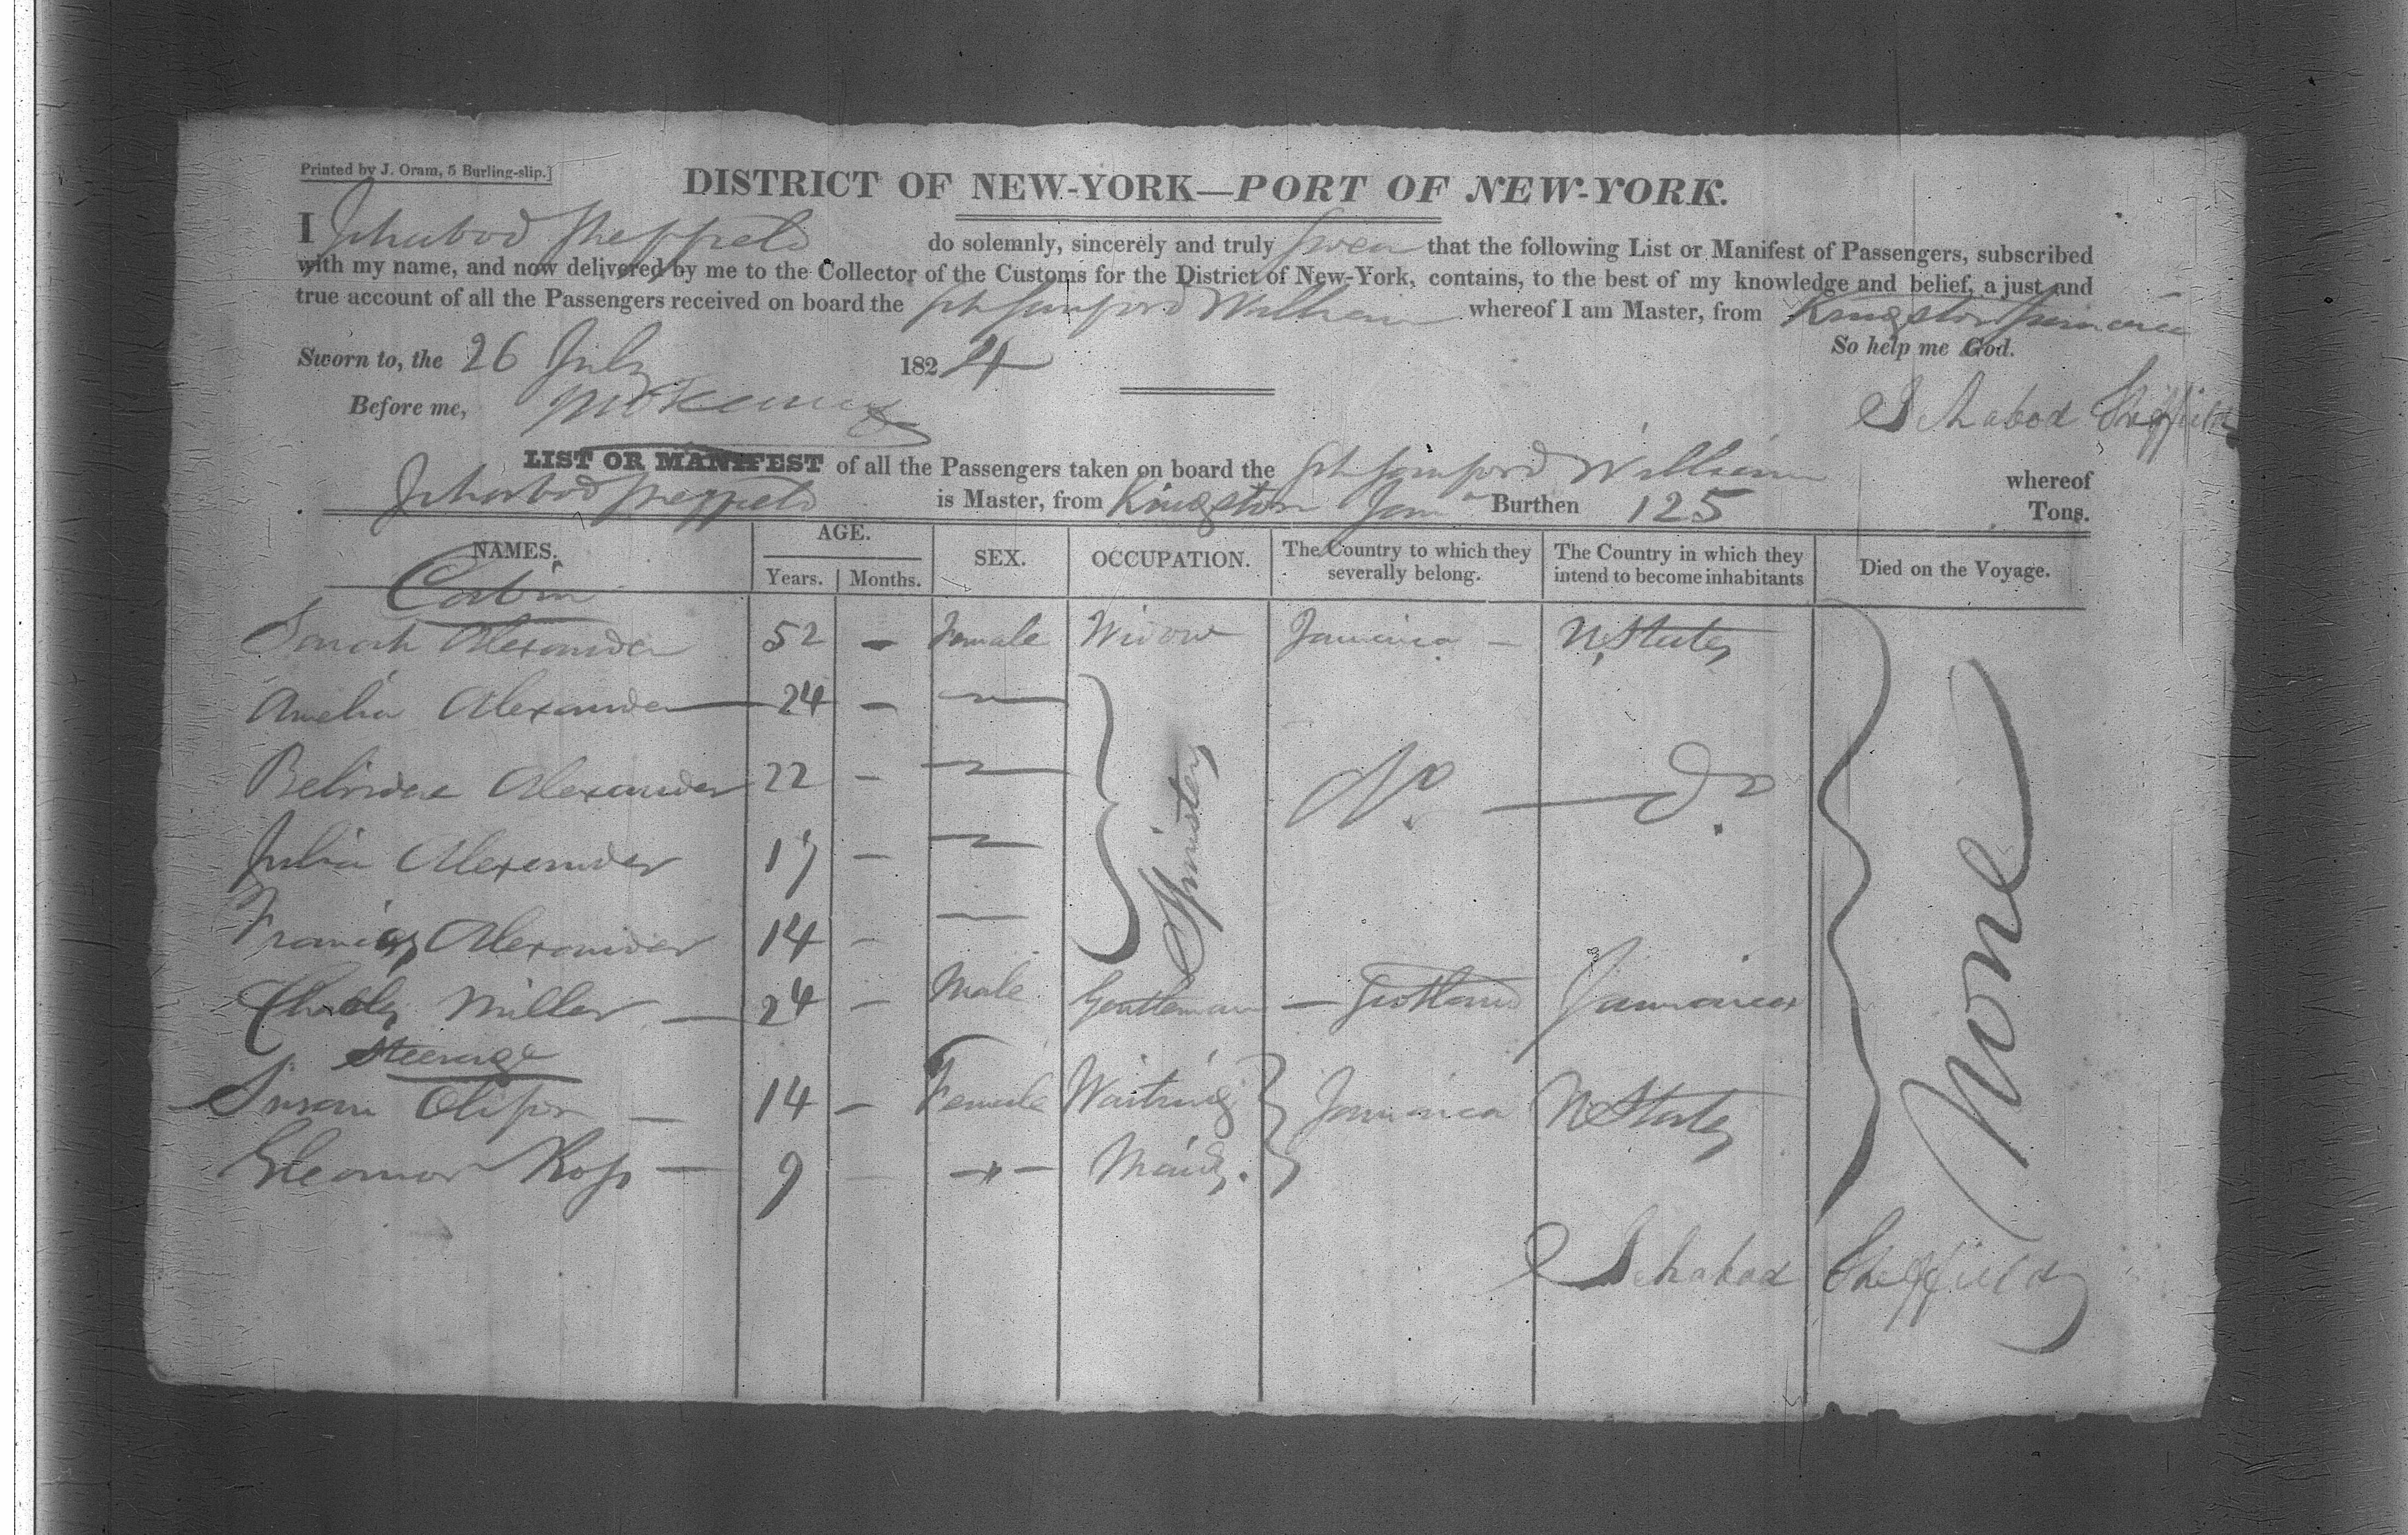 Printed by J. Oram, 5 Burling-slip.]
DISTRICT OF NEW-YORK—PORT OF NEW-YORK.
I Ichabod Sheffield do solemnly, sincerely and truly swear that the following List or Manifest of Passengers, subscribed
with my name, and now delivered by me to the Collector of the Customs for the District of New-York, contains, to the best of my knowledge and belief, a just and
true account of all the Passengers received on board the Sch Sampord William whereof I am Master, from Kingston Jamaica
Sworn to, the 26 July 1824 So help me God.
Before me, Ichabod Sheffield
LIST OR MANIFEST of all the Passengers taken on board the Sch Sampord William whereof
Ichabod Sheffield is Master, from Kingston Jama Burthen 125 Tons.
NAMES. AGE. SEX. OCCUPATION. The Country to which they severally belong. The Country in which they intend to become inhabitants Died on the Voyage.
Years. Months.
Cabin
Sarah Alexander 52 - Female Widow Jamaica - U States
Amelia Alexander 24 -
Alexander 22 - Spinsters Do Do None
Julia Alexander 17 -
Francis Alexander 14 -
Charles Miller 24 - Male Gentleman - Scotland Jamaica
Steerage
Susan 14 - Female Waiting Jamaica U States
Eleanor Ross 9 - " - Maids.
Ichabod Sheffield